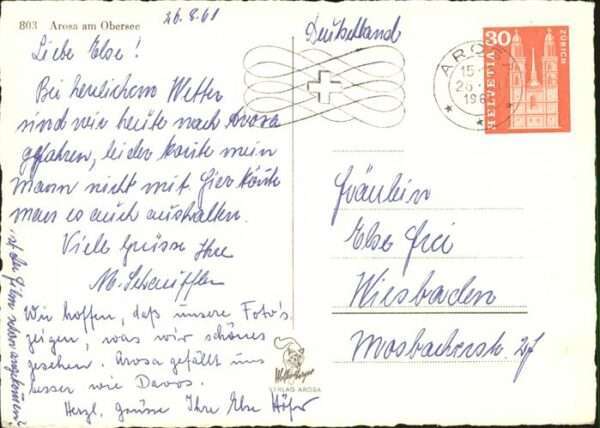 803 Arosa am Obersee
26.8.61
Liebe Else!
Bei herrlichem Wetter
sind wir heute nach Arosa
gefahren, leider konte mein
Mann nicht mit. Hier könte
man es auch aushalten.
Viele Grüsse Ihre
M. Schäuffler
Wir hoffen, daß unsere Foto's
zeigen, was wir schönes
gesehen. Arosa gefällt uns
besser wie Davos.
Herzl. Grüsse Ihre Else Höfer
ist der Film schon angekommen?
Deutschland
30
HELVETIA
ZÜRICH
AROSA
15
26
196
Fräulein
Else Frei
Wiesbaden
Mosbacherstr.
VERLAG AROSA